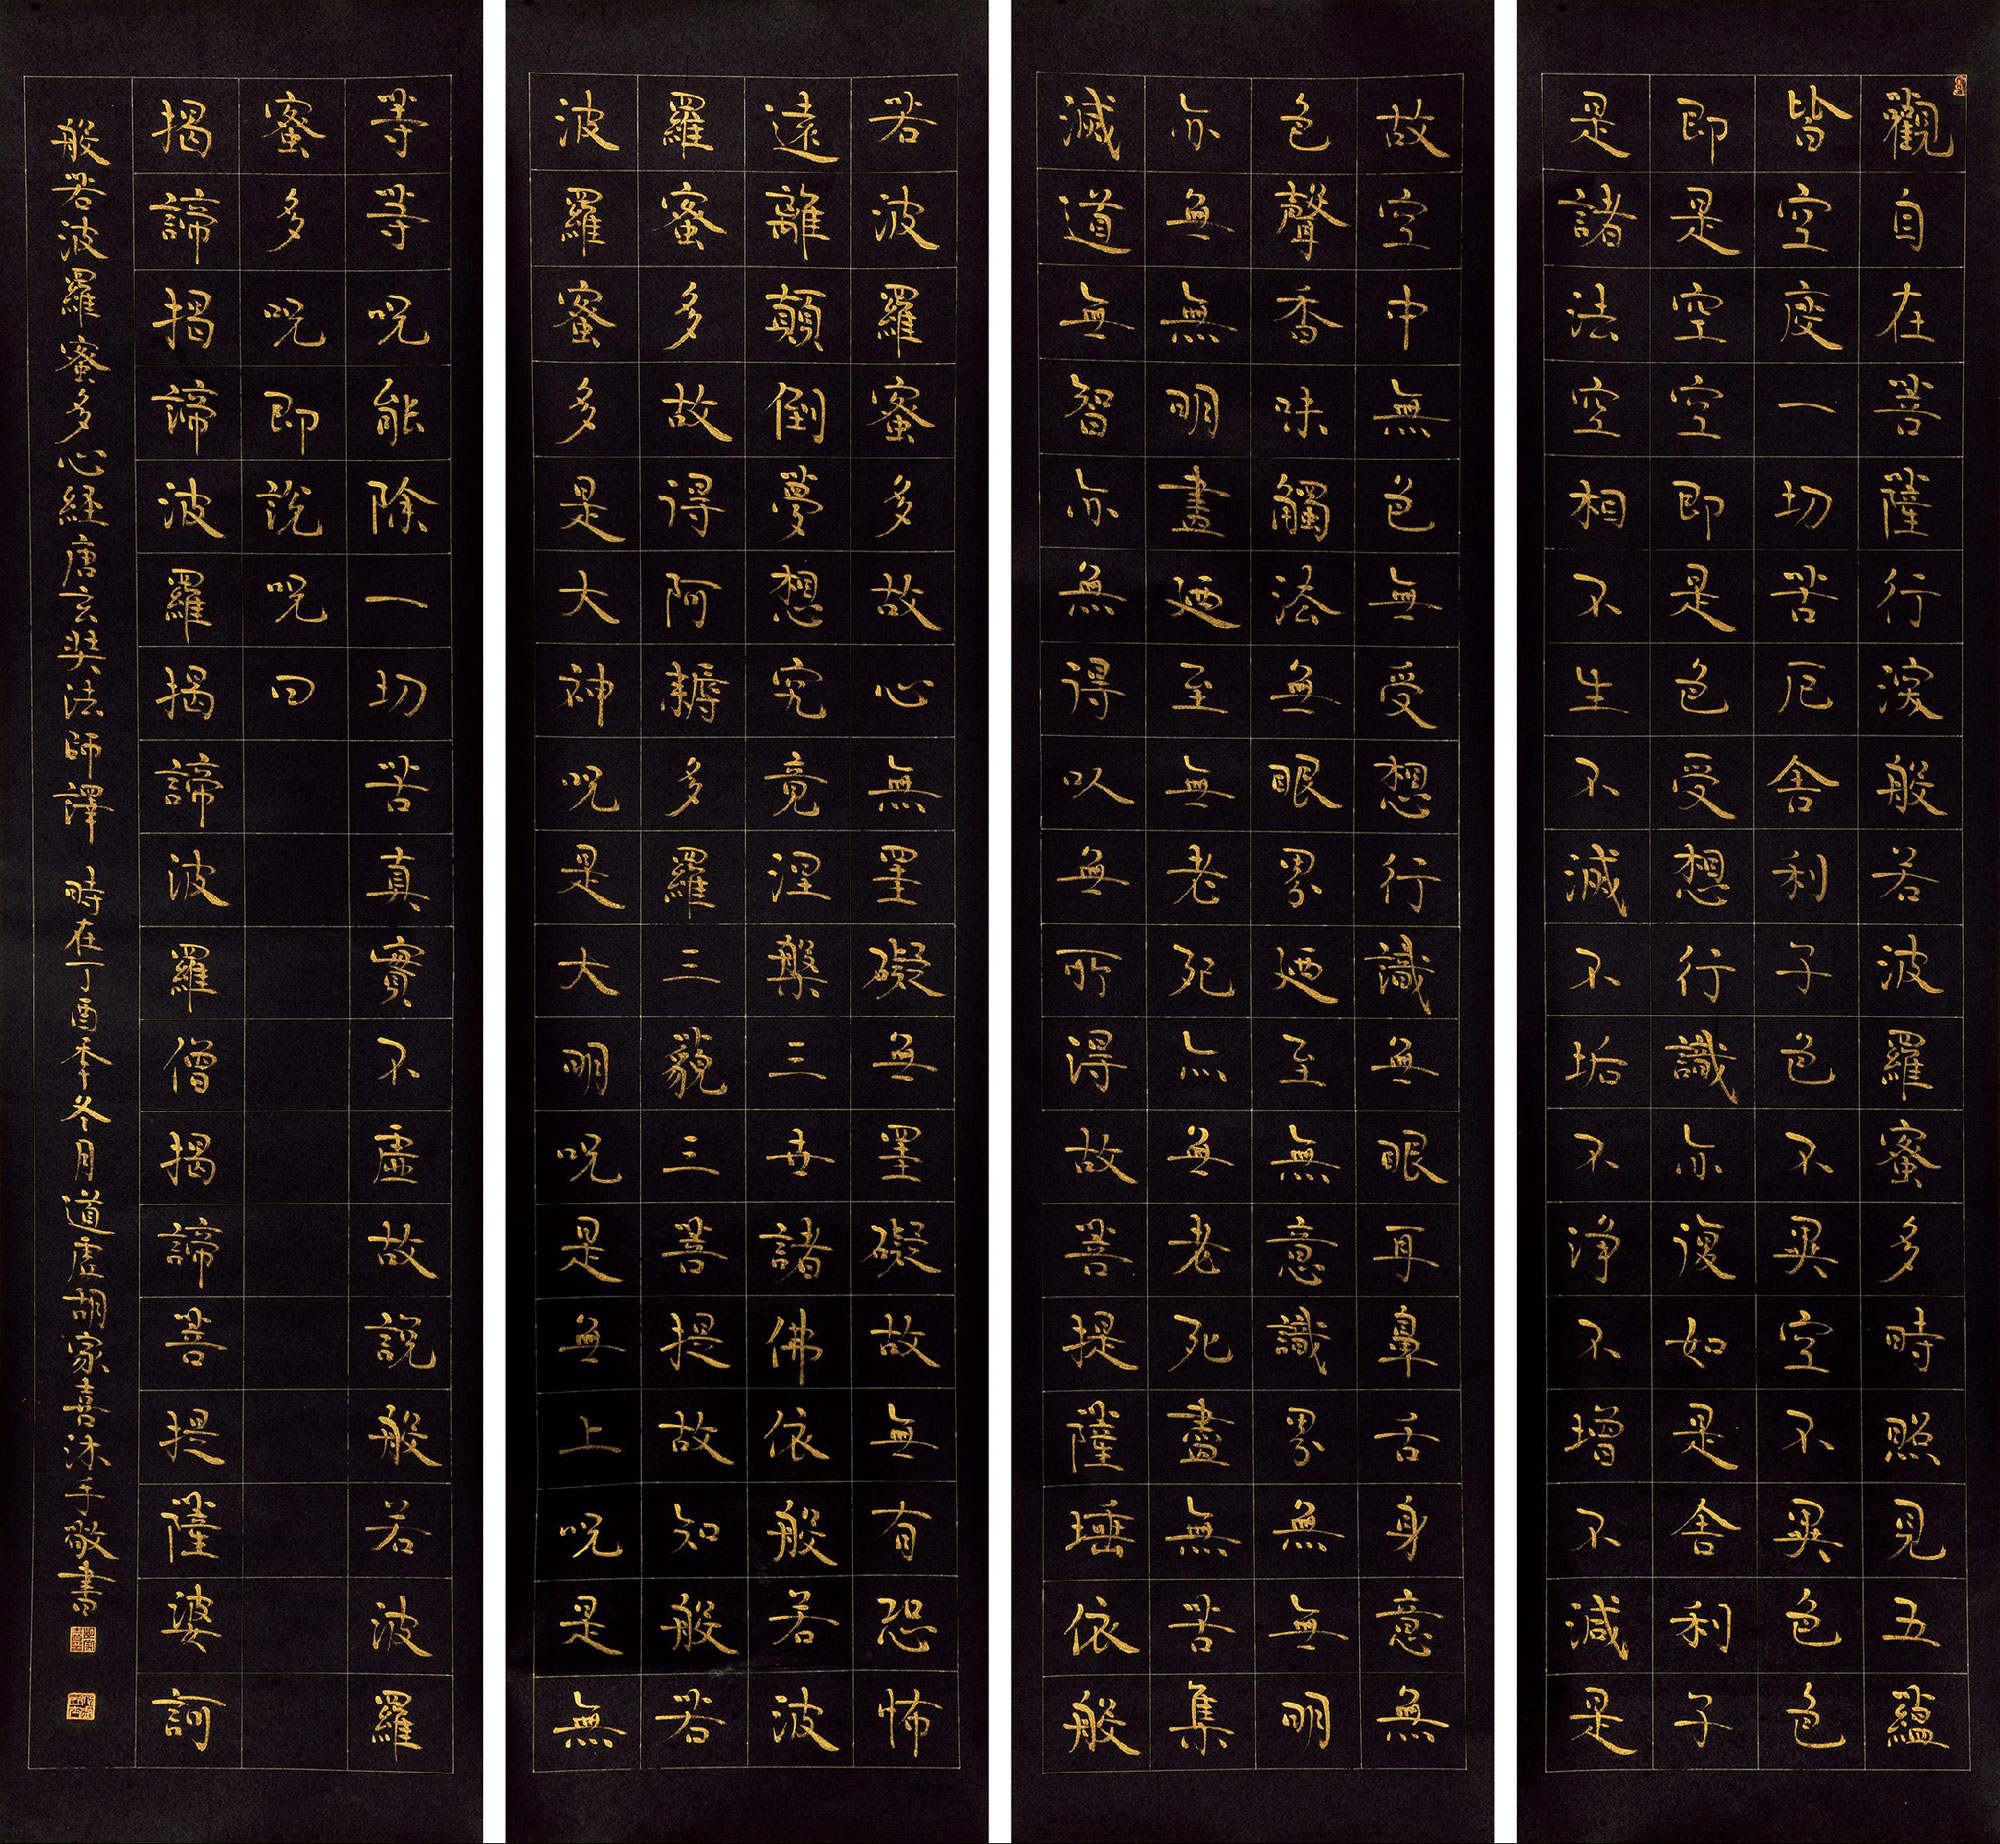 觀自在菩薩行深般若波羅蜜多時照見五蘊
皆空度一切苦厄舍利子色不異空不異色色
即是空空即是色受想行識亦復如是舍利子
是諸法空相不生不滅不垢不淨不增不減是
故空中無色無受想行識無眼耳鼻舌身意無
色聲香味觸法無眼界廼至無意識界無無明
亦無無明盡廼至無老死亦無老死盡無苦集
滅道無智亦無得以無所得故菩提薩埵依般
若波羅蜜多故心無罣礙無罣礙故無有恐怖
遠離顛倒夢想究竟涅槃三世諸佛依般若波
羅蜜多故得阿耨多羅三藐三菩提故知般若
波羅蜜多是大神呪是大明呪是無上呪是無
等等呪能除一切苦真實不虛故說般若波羅
蜜多呪即說呪曰
揭諦揭諦波羅揭諦波羅僧揭諦菩提薩婆訶
般若波羅蜜多心経唐玄奘法師譯 時在丁酉秊冬月道虛胡家喜沐手敬書